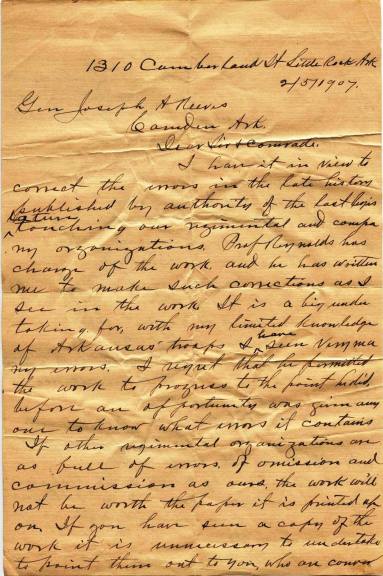 1310 Cumberland St Little Rock Ark
2/5/1907.
Gen Joseph A Reeves
Camden Ark.
Dear Sir & Comrade.
I have it in view to
correct the errors in the late history
published by authority of the last legis
lature touching our regimental and compa
ny organizations. Prof Reynolds has
charge of the work, and he has written
me to make such corrections as I
see in the work. It is a big under
taking for, with my limited knowledge
of Arkansas' troops I have seen very ma
ny errors. I regret that he permitted
the work to progress to the point he did,
before an opportunity was given any
one to know what errors it contains
If other regimental organizations are
as full of errors, of omission and
commission as ours, the work will
not be worth the paper it is printed up
on. If you have seen a copy of the
work it is unnecessary to undertake
to point them out to you, who are conver